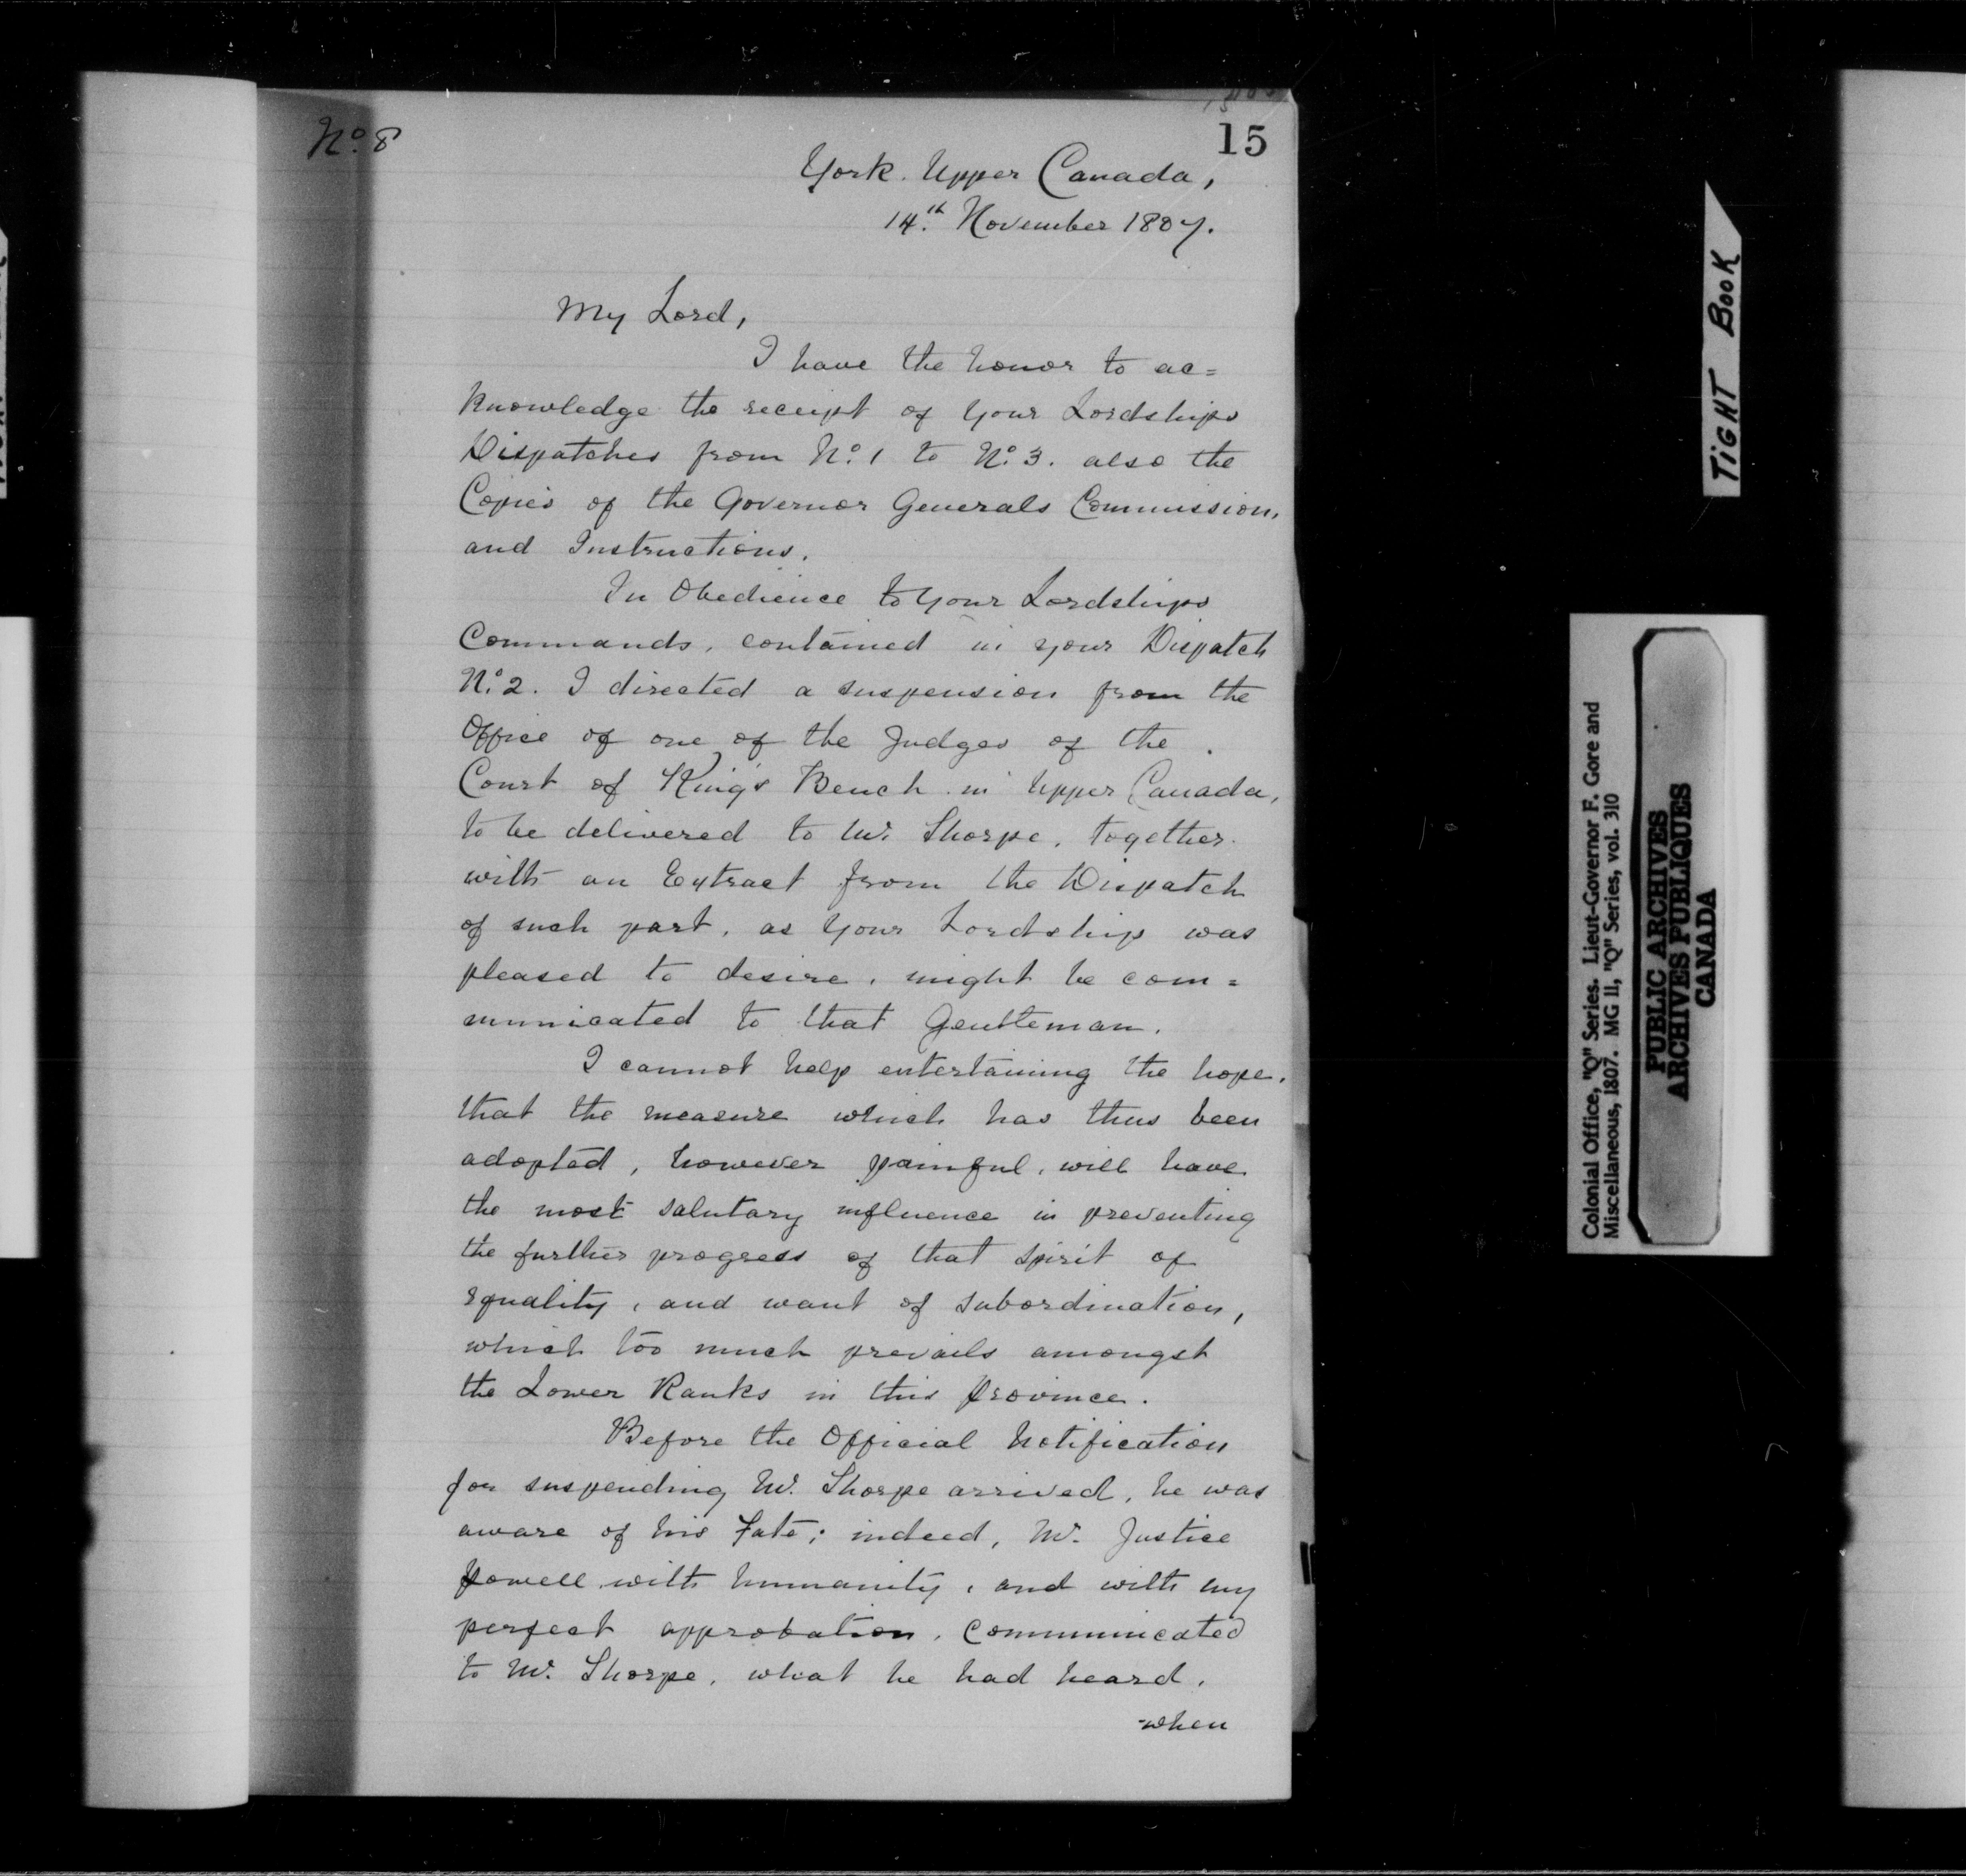 No. 8
15
York. Upper Canada,
14.th November 1807.
My Lord,
I have the honor to ac=
knowledge the receipt of Your Lordships
Dispatches from No. 1 to No. 3. also the
Copies of the Governor Generals Commission,
and Instructions.
In Obedience to Your Lordships
Commands, contained in your Dispatch
No. 2. I directed a suspension from the
Office of one of the Judges of the
Court of King's Bench in Upper Canada,
to be delivered to Mr. Thorpe, together
with an Extract from the Dispatch
of such part, as Your Lordship was
pleased to desire, might be com=
municated to that Gentleman.
I cannot help entertaining the hope,
that the measure which has thus been
adopted, however painful, will have
the most salutary influence in preventing
the further progress of that spirit of
equality, and want of subordination,
which too much prevails amongst
the Lower Ranks in this province.
Before the Official Notification
for suspending Mr. Thorpe arrived, he was
aware of his fate; indeed, Mr. Justice
Powell with humanity, and with my
perfect approbation, communicated
to Mr. Thorpe, what he had heard,
when
TIGHT BOOK
Colonial Office, "Q" Series. Lieut-Governor F. Gore and
Miscellaneous, 1807. MG 11, "Q" Series, vol. 310
PUBLIC ARCHIVES
ARCHIVES PUBLIQUES
CANADA